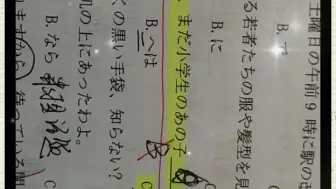 土曜日の午前 9 時に駅の
B. で
る若者たちの服や髪型を見
B. に
まだ小学生のあの子
B. へは C
くの黒い手袋、知らない？
机の上にあったわよ。
B. なら C
ますから 待っている間